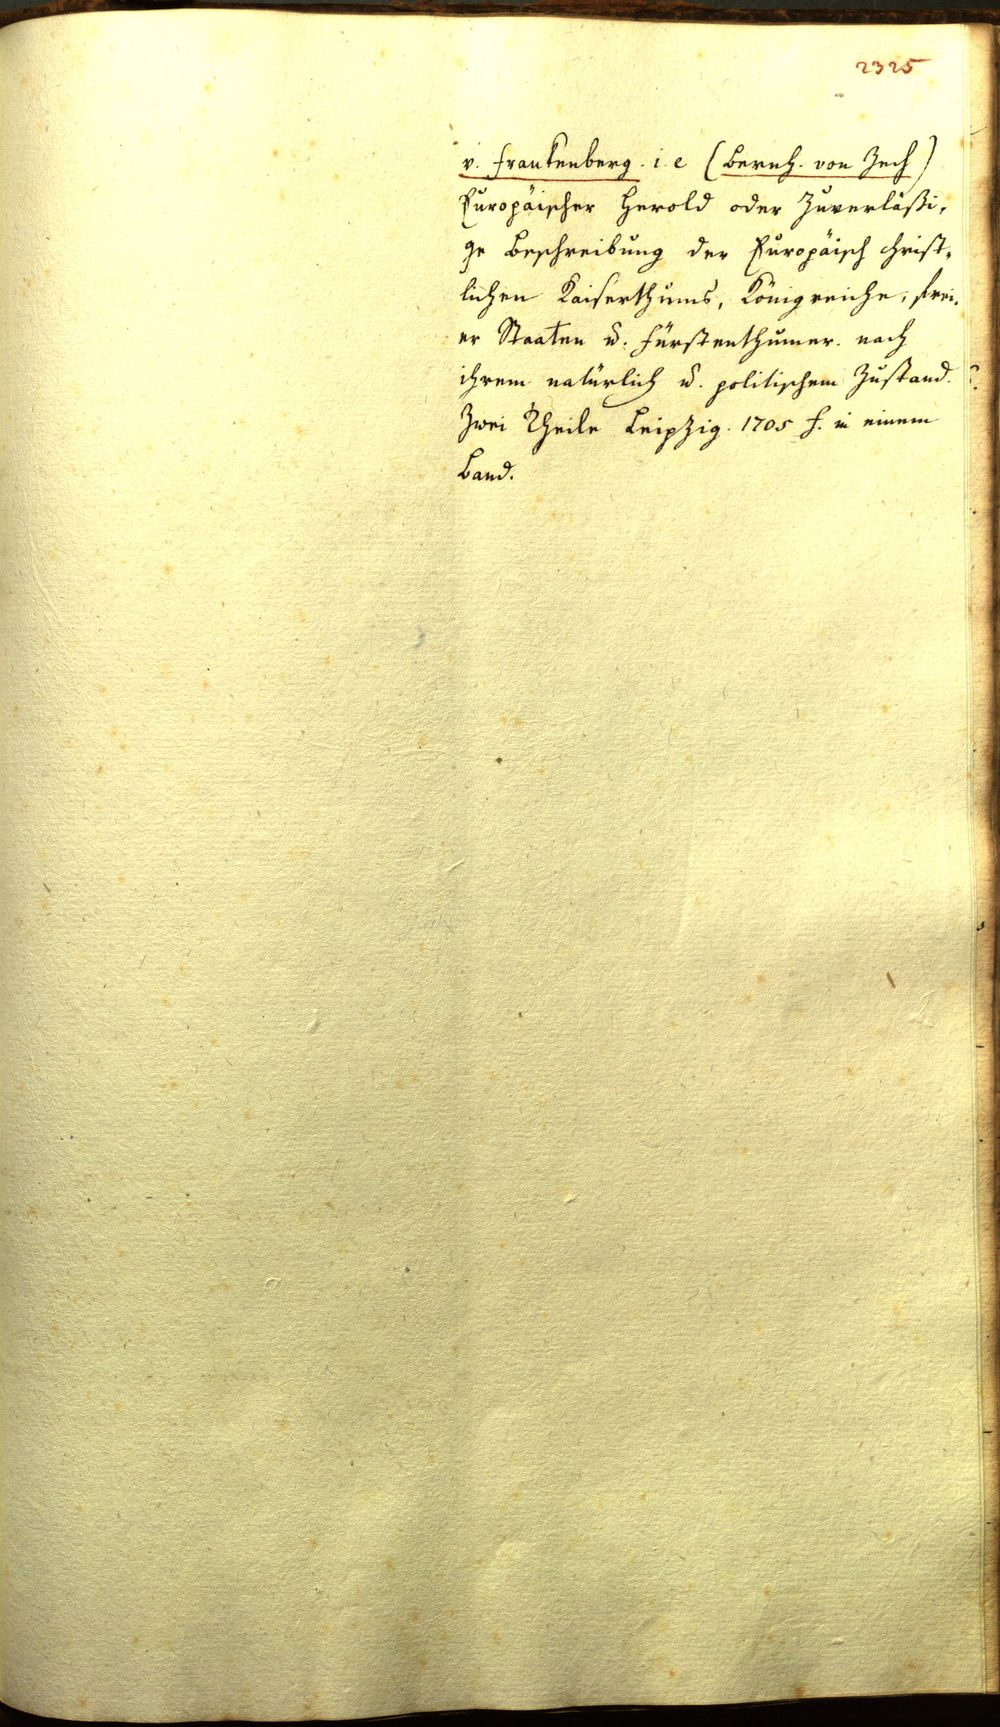 2325
v. Frankenberg. i. e (Bernh. von Zech)
Europäischer Herold oder Zuverläßi-
ge Beschreibung der Europäisch christ-
lichen Kaiserthums, Königreiche, frei-
er Staaten u. Fürstenthumer. nach
ihrem natürlich u. politischem Zustand.
Zwei Theile Leipzig. 1705 f. in einem
Band.